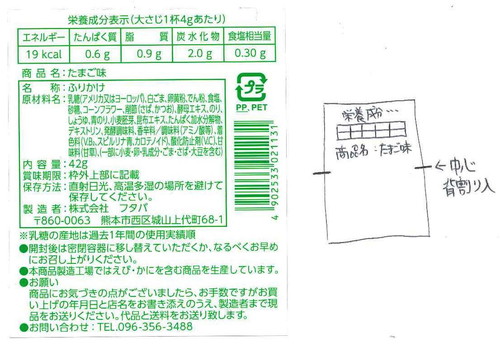 栄養成分表示(大さじ1杯4gあたり)
エネルギー たんぱく質 脂質 炭水化物 食塩相当量
19 kcal 0.6 g 0.9 g 2.0 g 0.30 g
商品名:たまご味
名称:ふりかけ
原材料名:乳糖(アメリカ又はヨーロッパ)、白ごま、卵黄粉、でん粉、食塩、
砂糖、コーンフラワー、削節(さば、かつお)、酵母エキス、のり、
しょうゆ、青のり、小麦胚芽、昆布エキス、たんぱく加水分解物、
デキストリン、発酵調味料、香辛料/調味料(アミノ酸等)、着
色料(V.B₂、スピルリナ青、カロテノイド)、酸化防止剤(V.E)、甘
味料(甘草)、(一部に小麦・卵・乳成分・ごま・さば・大豆を含む)
内容量:42g
賞味期限:枠外上部に記載
保存方法:直射日光、高温多湿の場所を避けて
保存してください。
製造者:株式会社 フタバ
〒860-0063 熊本市西区城山上代町68-1
プラ
PP、PET
4902533021131
※乳糖の産地は過去1年間の使用実績順
●開封後は密閉容器に移し替えていただくか、なるべくお早め
にお召し上がりください。
●本商品製造工場ではえび・かにを含む商品を生産しています。
●お願い
商品にお気づきの点がございましたら、お手数ですがお買
い上げの年月日と店名をお書き添えのうえ、製造者まで現
品をお送りください。代品と送料をお送り致します。
●お問い合わせ:TEL.096-356-3488
栄養成分…
商品名:たまご味
←中心
背割り入